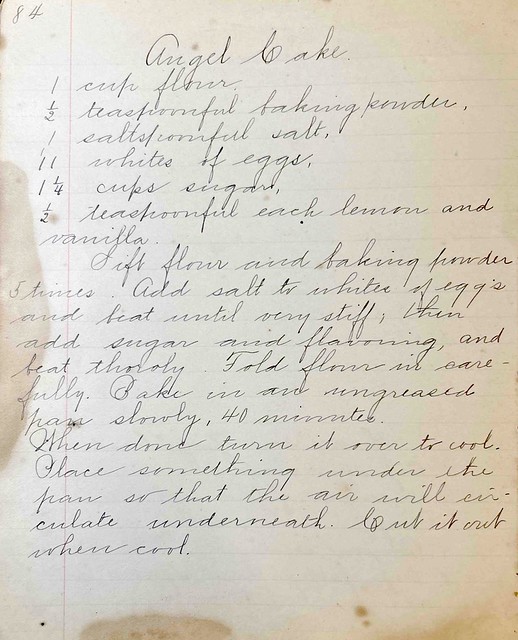 84
Angel Cake.
1 cup flour.
½ teaspoonful baking powder,
1 saltspoonful salt,
11 whites of eggs,
1¼ cups sugar,
½ teaspoonful each lemon and
vanilla.
Sift flour and baking powder
5 times. Add salt to whites of egg's
and beat until very stiff; then
add sugar and flavoring, and
beat thoroly. Fold flour in care-
fully. Bake in an ungreased
pan slowly, 40 minutes.
When done turn it over to cool.
Place something under the
pan so that the air will cir-
culate underneath. Cut it out
when cool.